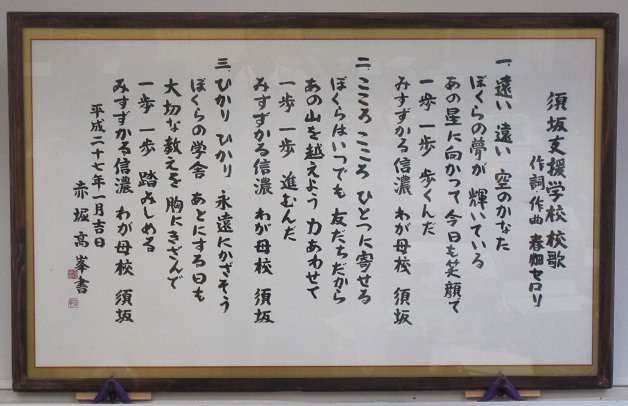 須坂支援学校校歌
作詞 作曲 春畑セロリ
一、遠い 遠い 空のかなた
ぼくらの夢が 輝いている
あの星に向かって 今日も笑顔で
一歩 一歩 歩くんだ
みすずかる信濃 わが母校 須坂
二、こころ こころ ひとつに寄せる
ぼくらはいつでも 友だちだから
あの山を越えよう 力あわせて
一歩 一歩 進むんだ
みすずかる信濃 わが母校 須坂
三、ひかり ひかり 永遠にかざそう
ぼくらの学舎 あとにする日も
大切な教えを 胸にきざんで
一歩 一歩 踏みしめる
みすずかる信濃 わが母校 須坂
平成二十七年一月吉日
赤堀 高峯書